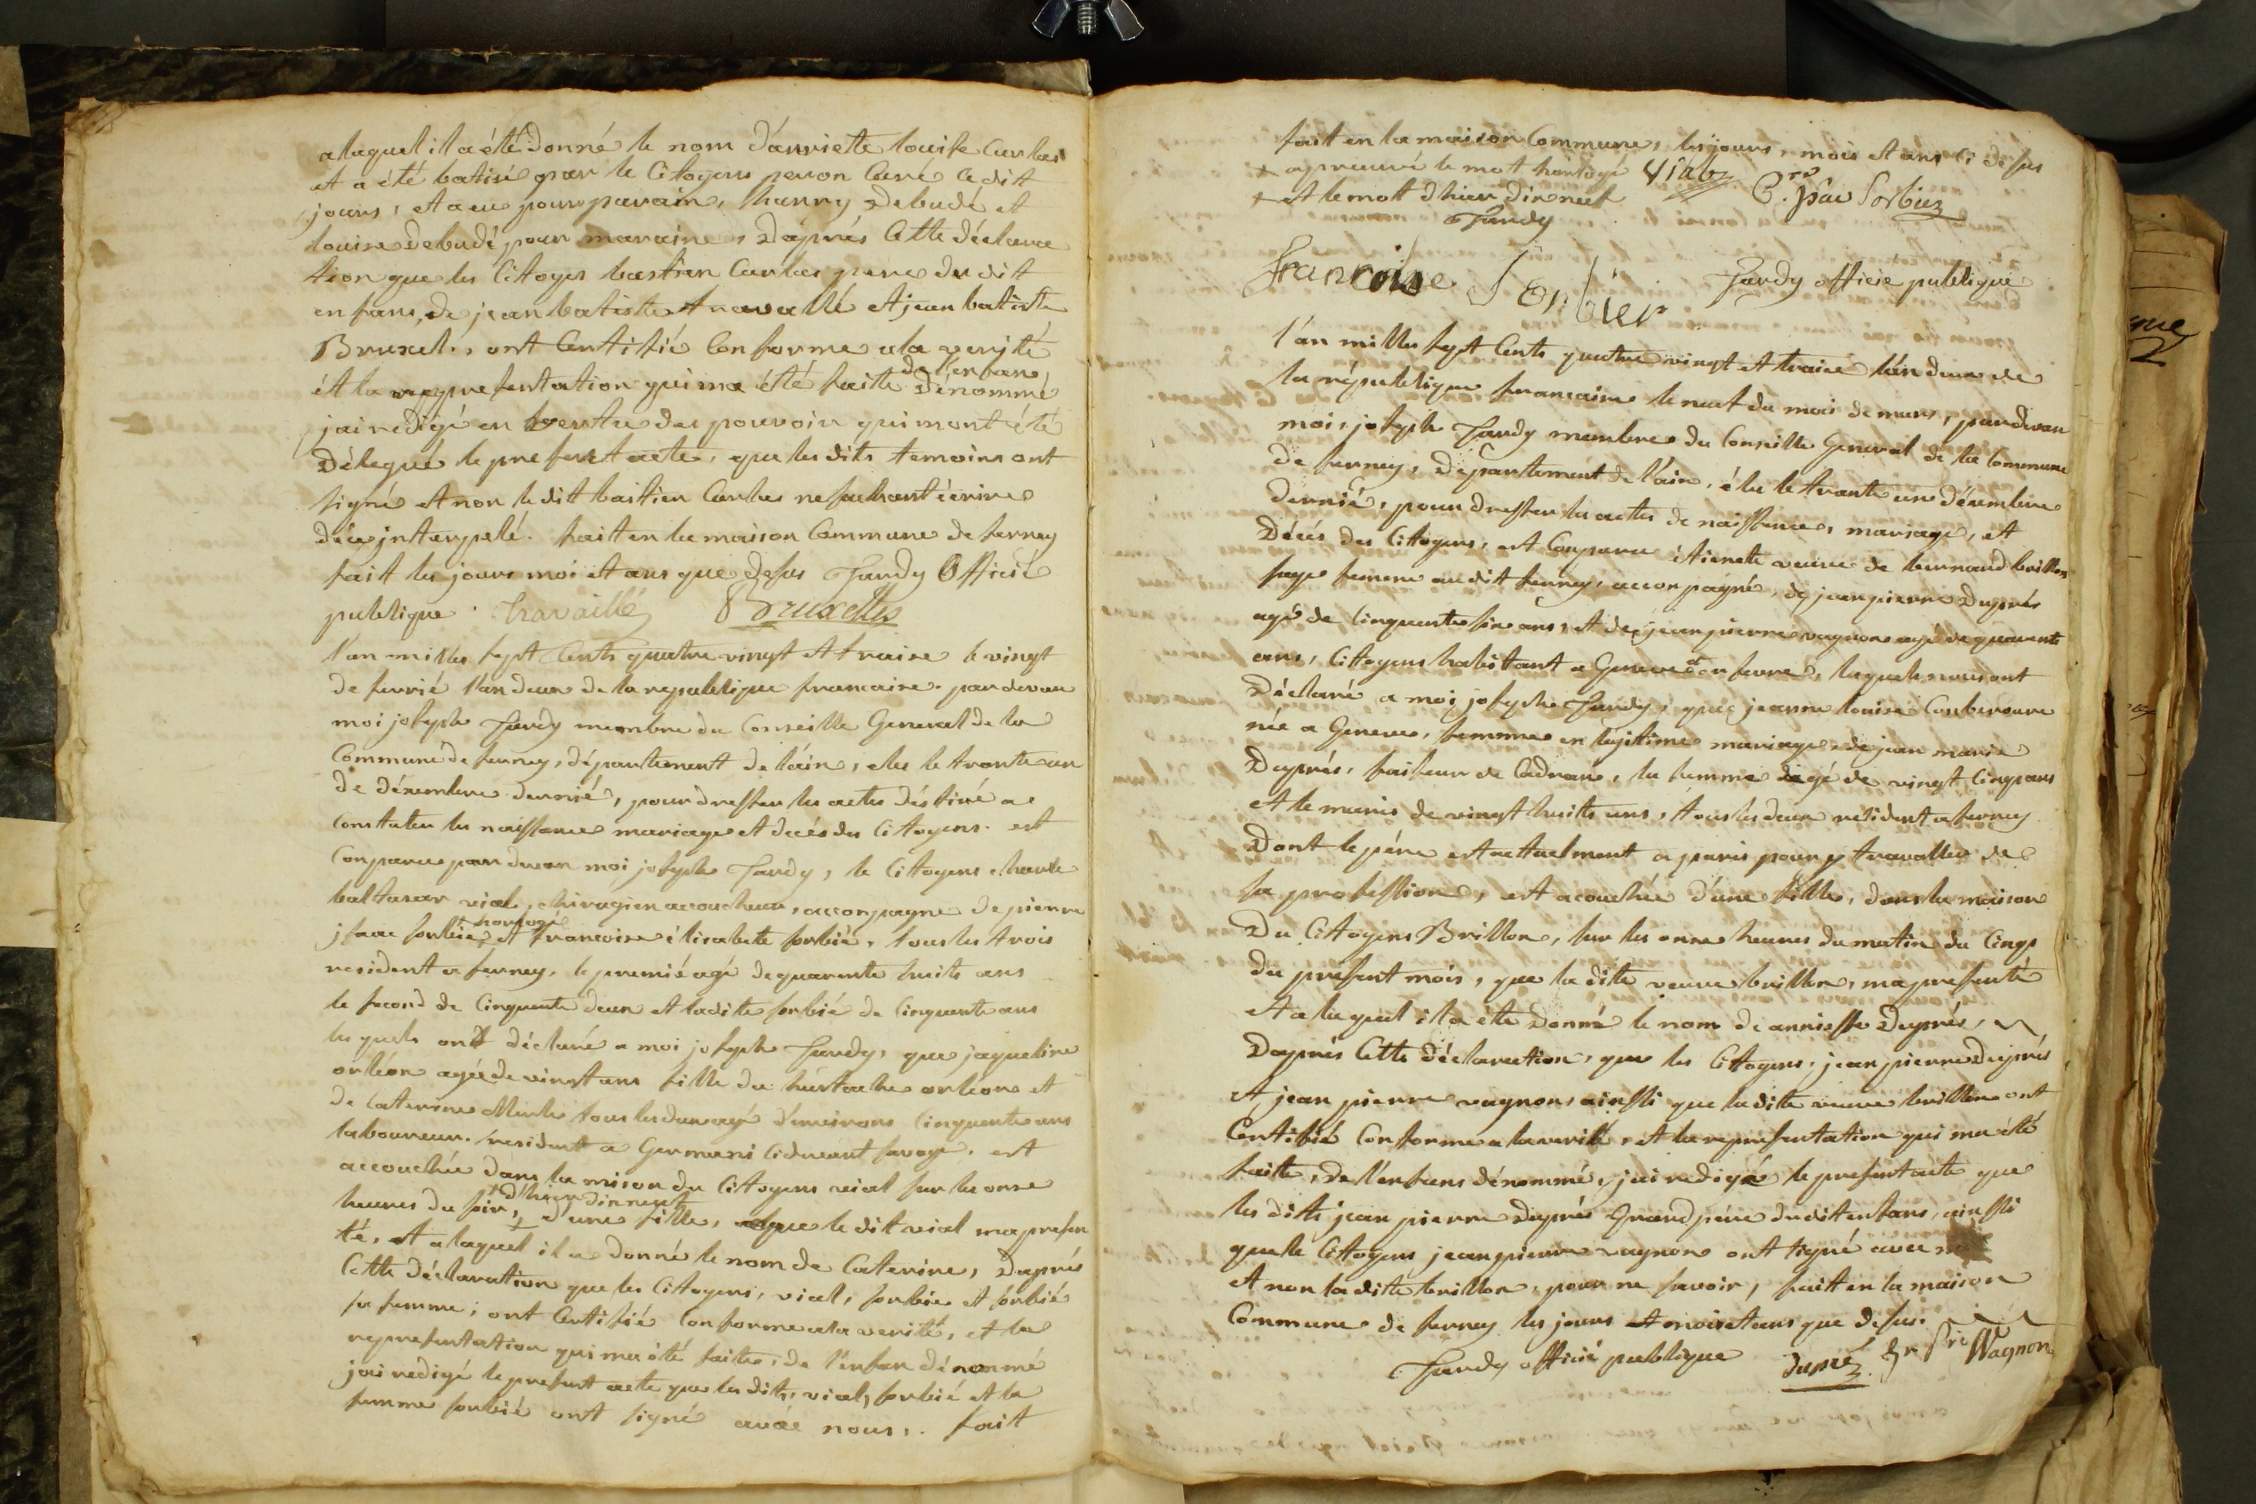 alaquel il a été donné le nom d'anriette louise Carlas
et a été batisé par le Citoyens peron Curé ce dit
jours, et a eu pour parain, hanry Debude et
louise Debudé pour maraine, D'aprés Cette déclara
tion que les Citoyes bastien Carlas pere du dit
enfans, de jean batiste travallié et jean batiste
Bruxel, ont Certifié Conforme ala verité
de l'enfan
ét la representation qui ma été faite Dénommé
jai redigé en vertu des pouvoir qui mont été
Délegué le present acte, que les dits temoins ont
signé et non le dit bastien Carlas ne sachant écrire
déce interpelé. fait en la maison Commune de ferney
fait les jours moi et ans que desus Jardy Officié
publique. travaillé Bruxelles
l'an milles sept Cents quatre vingt et traise le vingt
de fevrié l'an deux de la republique francaise. pardevan
moi joseph Jardy membre du Conseille General de la
Commune de ferney, département de l'ain, elu le trante un
de désembre dernié, pour dresser les actes déstiné a
Constater les naissance mariage et decés des Citoyens. est
Conparu par devan moi joseph Jardy, le Citoyens charle
baltasar vial, chirugien acoucheur, accompagné de pierre
horlogé
jsaac sorbié, et francoise élisabette sorbié, tous les trois
resident a ferney, le premié agé de quarente huits ans
le second de Cinquente deux et la dite sorbié de Cinquente ans
lesquels ont déclaré a moi joseph Jardy, que jaqueline
orléon agée de vingt ans fille du hustache orléon et
de Caterine Merle tous les deux agé d'environs Cinquente ans
laboureur. resident a Germani Cidevant savoye. est
accouchée dans la maison du Citoyens vial sur les onse
d'hier dirneuf
heures du soir, d'une fille, que le dit vial ma presen
té, et a laquel il a donné le nom de Caterine, D'aprés
Cette déclaration que les Citoyens, vial, sorbié et sorbié
sa femme, ont Certifié Conforme ala verité, et la
representation qui ma été faite, de l'enfan dénommé
jai redigé le present acte que les dits, vial, sorbié et la
femme sorbié ont signé avec nous,. fait
fait en la maison Commune, les jours, mois et ans Ci desus
+ aprouvé le mot horlogé Vial
+ et le mot d'hier dirneuf P.re Isac Sorbier
Jardy
francoise Sorbier Jardy officié publique
l'an milles sept Cents quatre vingt et traise l'an deux de
la république francaise le neuf du mois de mars, pardevan
moi, joseph Jardy membre du Conseille General de la Commune
de ferney, Département de l'ain, élu le trante un désembre
dernié, pour dresser les actes de naissance, mariage, et
Décés des Citoyens, est Conparu étienete veuve de bernard brillon
sage femme au dit ferney, accompagné, de jean pierre Duprés
agé de Cinquente six ans, et de jean pierre vagnon agé de quarente
ans, Citoyens habitant a Geneve et a ferné, lesquels nous ont
Déclaré a moi joseph Jardy, que jeanne louise
née a Geneve, femme en légitime mariage, de jean marie
Duprés, faiseur de Cadrans, la femme agé de vingt Cinq ans
et le maris de vingt huits ans, tous les deux resident a ferney
Dont le pére est actuelment a paris pour y travallier de
sa profession, est acouchée d'une fille, dans la maison
Du Citoyens Brillon, sur les onse heures du matin du Cinqs
du présent mois, que la dite veuve brillon, ma presenté
et a laquel il a été Donné le nom de Duprés,
D'aprés Cette déclaration, que les Citoyens, jean pierre Duprés
et jean pierre vagnon, ainssi que la dite veuve brillon ont
Certifié Conforme a la verité, et la representation qui ma été
faitte, de l'enfans dénommé, jai redigé le present acte que
les dits jean pierre Duprés Grand pére du dit enfans, ainssi
que le Citoyens jean pierre vagnon ont signé avec
et non la dite brillon, pour ne savoir, fait en la maison
Commune de ferney les jours et mois et ans que desus.
Jardy officié publique Dupré Jn Pre Wagnon